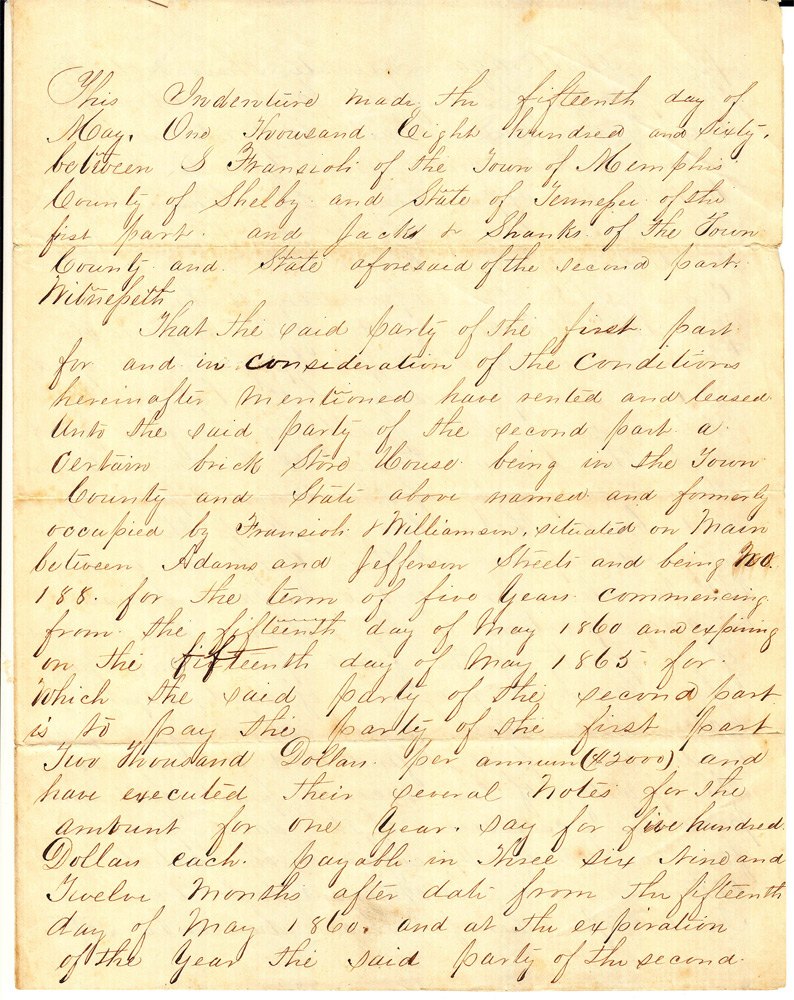 This Indenture made the fifteenth day of
May. One Thousand Eight hundred and sixty.
between S Fransioli of the Town of Memphis
County of Shelby and State of Tennessee of the
first part. and Jacks & Shanks of the Town
County and State aforesaid of the second part.
Witnesseth
That the said party of the first part
for and in consideration of the conditions
hereinafter mentioned have rented and leased
Unto the said party of the second part a
certain brick Store House being in the Town
County and State above named and formerly
occupied by Fransioli & Williamson, situated on Main
between Adams and Jefferson Streets and being No.
188. for the term of five Years commencing
from the fifteenth day of May 1860 and expiring
on the fifteenth day of May 1865 for
Which the said party of the second part
is to pay the party of the first part
Two Thousand Dollars per annum ($2000) and
have executed their several Notes for the
amount for one Year. say for five hundred
Dollars each. payable in Three six Nine and
Twelve Months after date from the fifteenth
day of May 1860. and at the expiration
of the Year the said party of the second